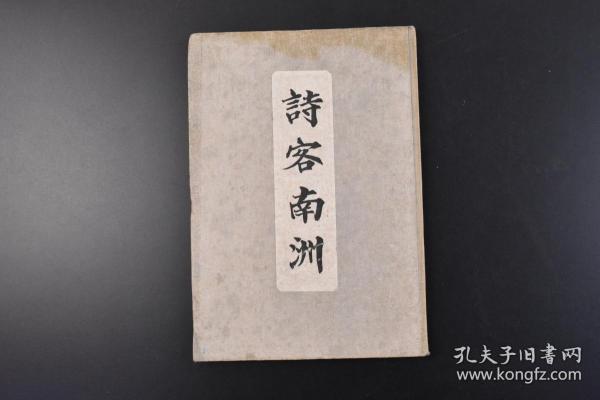 詩客南洲
孔夫子旧書网
www.kongfz.com